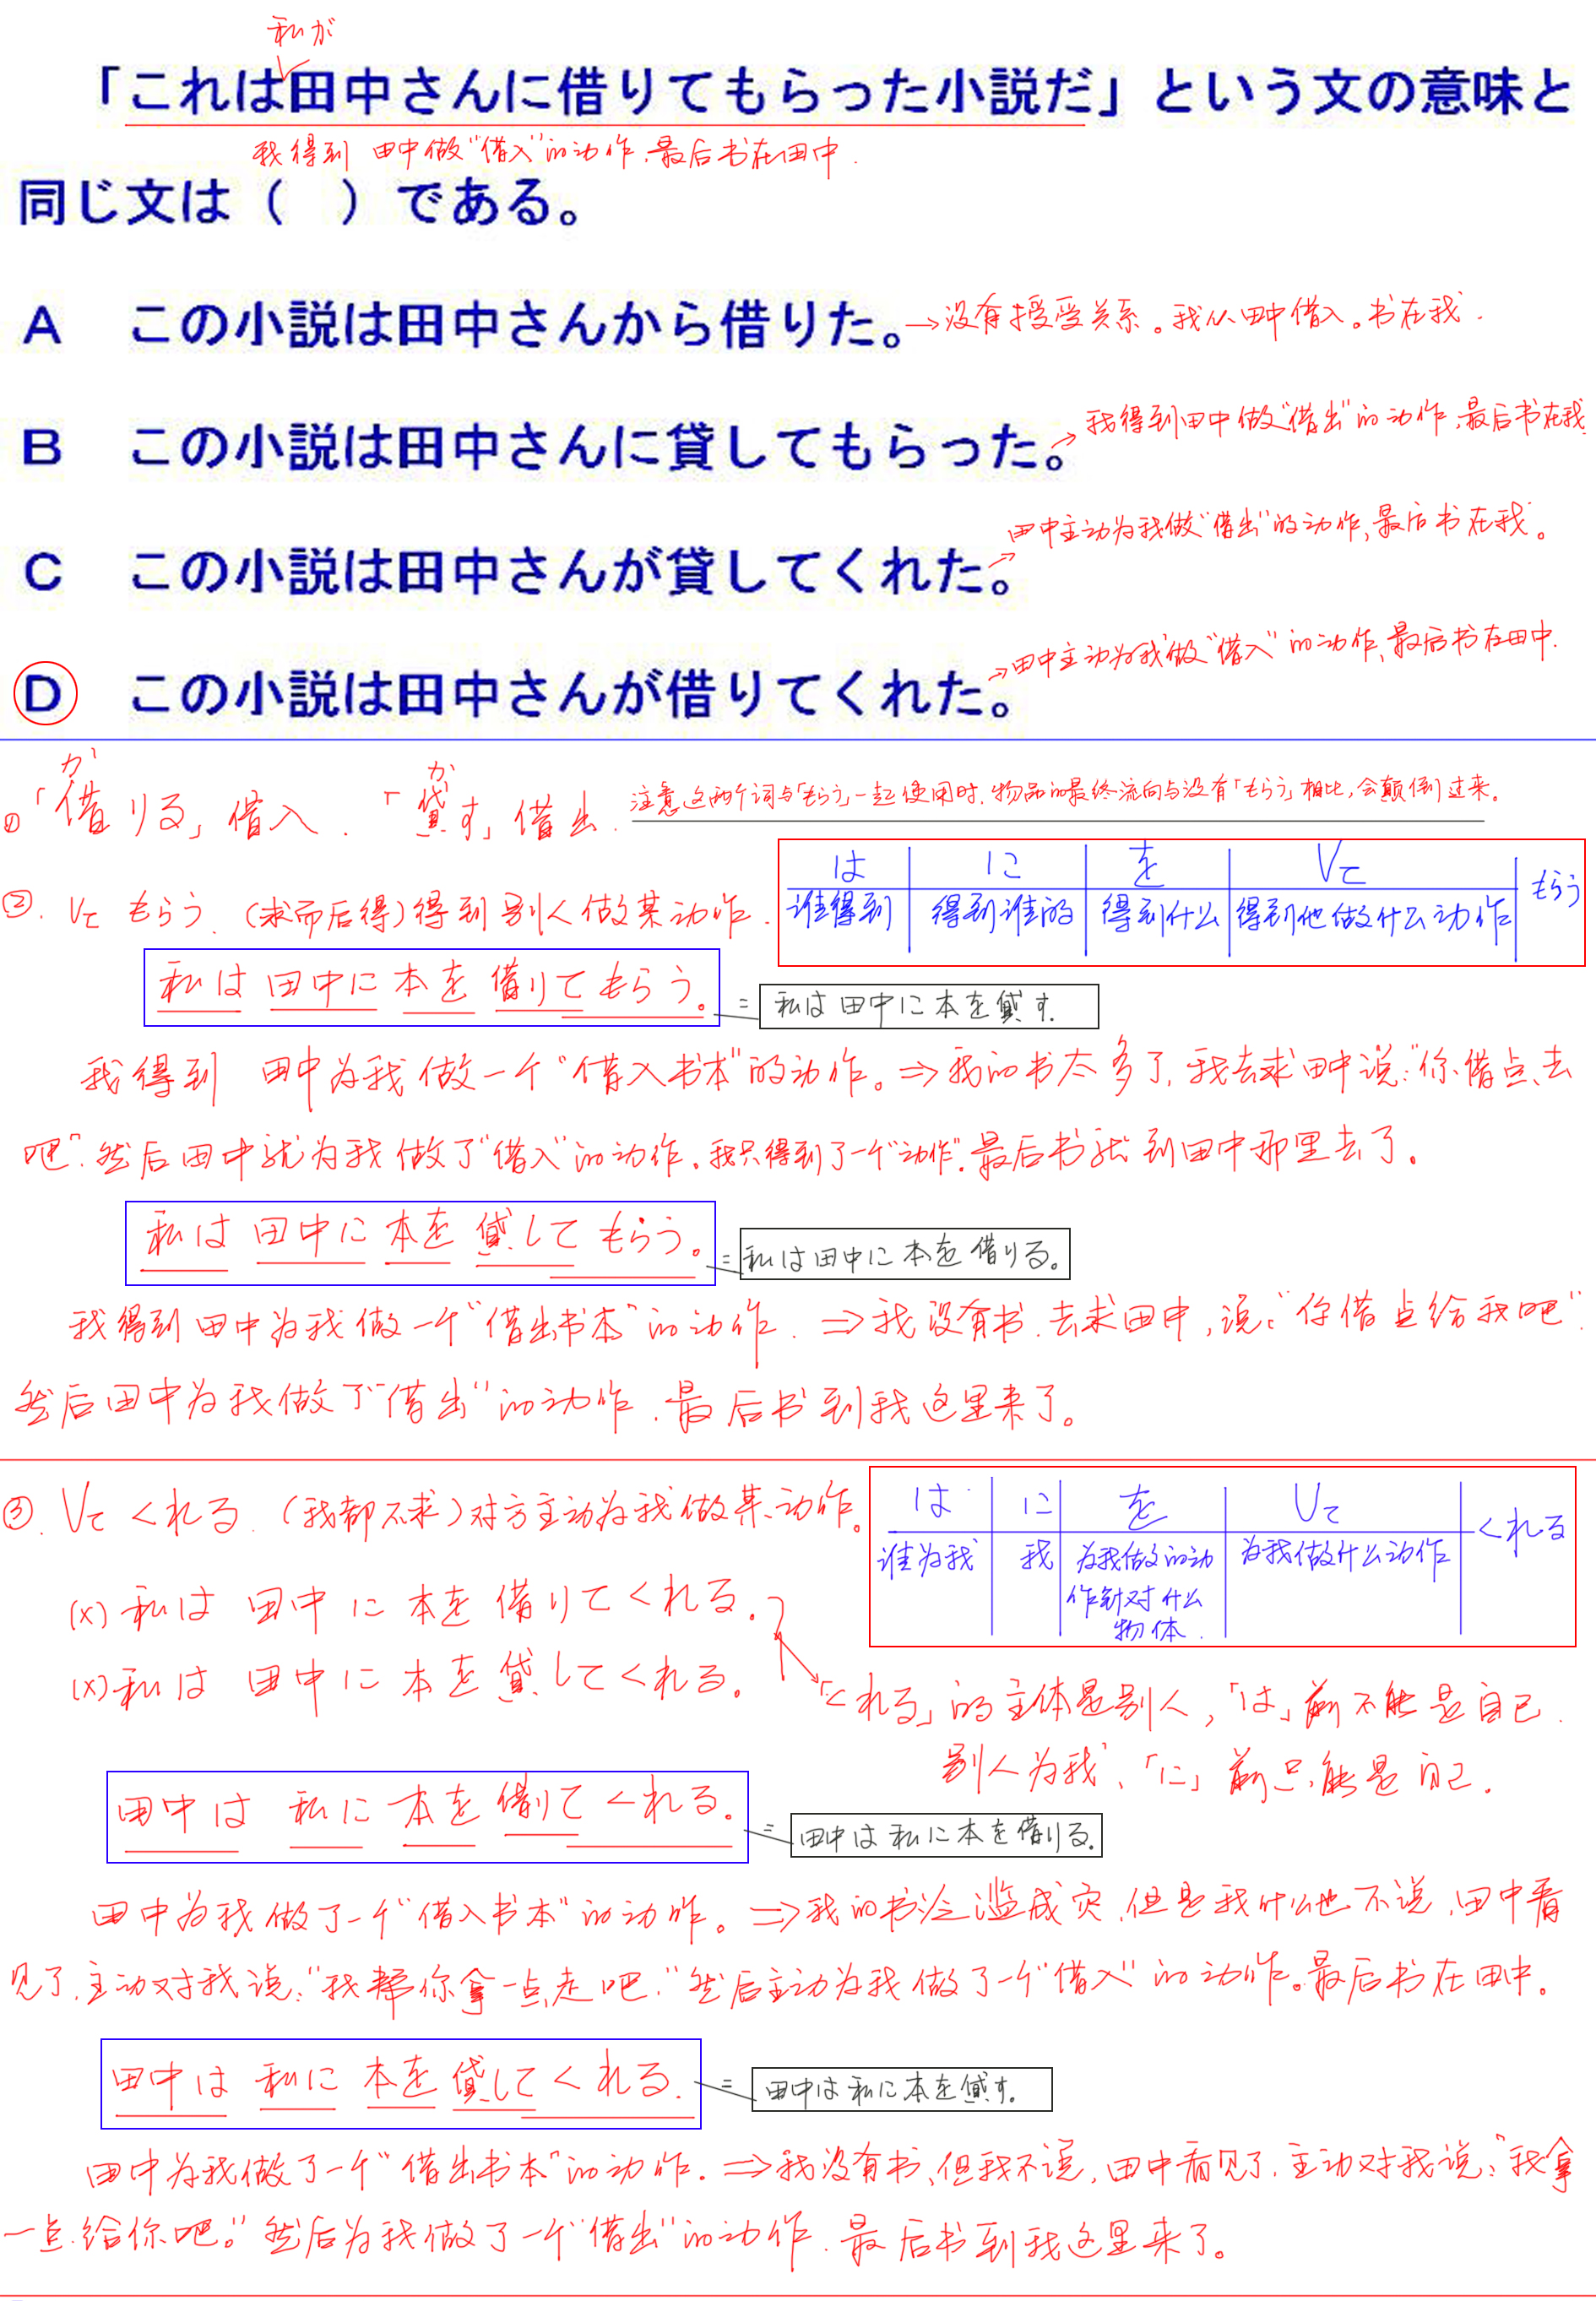 私が
「これは田中さんに借りてもらった小説だ」という文の意味と
我得到 田中做"借入"的动作,最后书在田中.
同じ文は（　）である。
A この小説は田中さんから借りた。→没有授受关系。我从田中借入。书在我.
B この小説は田中さんに貸してもらった。→我得到田中做"借出"的动作,最后书在我.
C この小説は田中さんが貸してくれた。→田中主动为我做"借出"的动作,最后书在我。
D この小説は田中さんが借りてくれた。→田中主动为我做"借入"的动作,最后书在田中.
か か
①「借りる」借入.「貸す」借出. 注意这两个词与「もらう」一起使用时,物品的最终流向与没有「もらう」相比,会颠倒过来。
②. Vて もらう.(求而后得)得到别人做某动作.
は に を Vて もらう
谁得到 得到谁的 得到什么 得到他做什么动作
私は 田中に 本を 借りて もらう。 = 私は田中に本を貸す.
我得到 田中为我做一个"借入书本"的动作。⇒我的书太多了,我去求田中说:"你借点去
吧".然后田中就为我做了"借入"的动作。我只得到了一个"动作".最后书就到田中那里去了。
私は 田中に 本を 貸して もらう。 = 私は田中に本を借りる。
我得到田中为我做一个"借出书本"的动作. ⇒我没有书.去求田中,说:"你借点给我吧".
然后田中为我做了"借出"的动作.最后书到我这里来了。
③. Vて くれる.(我都不求)对方主动为我做某动作。
は に を Vて くれる
谁为我 我 为我做的动 为我做什么动作
作针对什么
物体.
(x) 私は 田中に 本を 借りてくれる.
(x) 私は 田中に 本を 貸してくれる.
「くれる」的主体是别人,「は」前不能是自己.
别人为我、「に」前只能是自己.
田中は 私に 本を 借りて くれる. = 田中は私に本を借りる.
田中为我做了一个"借入书本"的动作。⇒我的书泛滥成灾,但是我什么也不说,田中看
见了,主动对我说:"我帮你拿一点走吧."然后主动为我做了一个"借入"的动作。最后书在田中.
田中は 私に 本を 貸して くれる. = 田中は私に本を貸す.
田中为我做了一个"借出书本"的动作. ⇒我没有书,但我不说,田中看见了,主动对我说:"我拿
一点给你吧。"然后为我做了一个"借出"的动作.最后书到我这里来了。